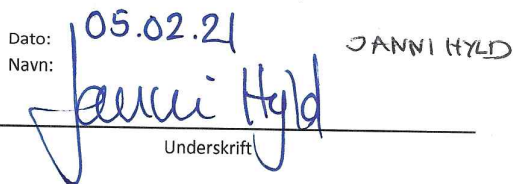 Dato: 05.02.21
JANNI HYLD
Navn:
Janni Hyld
Underskrift